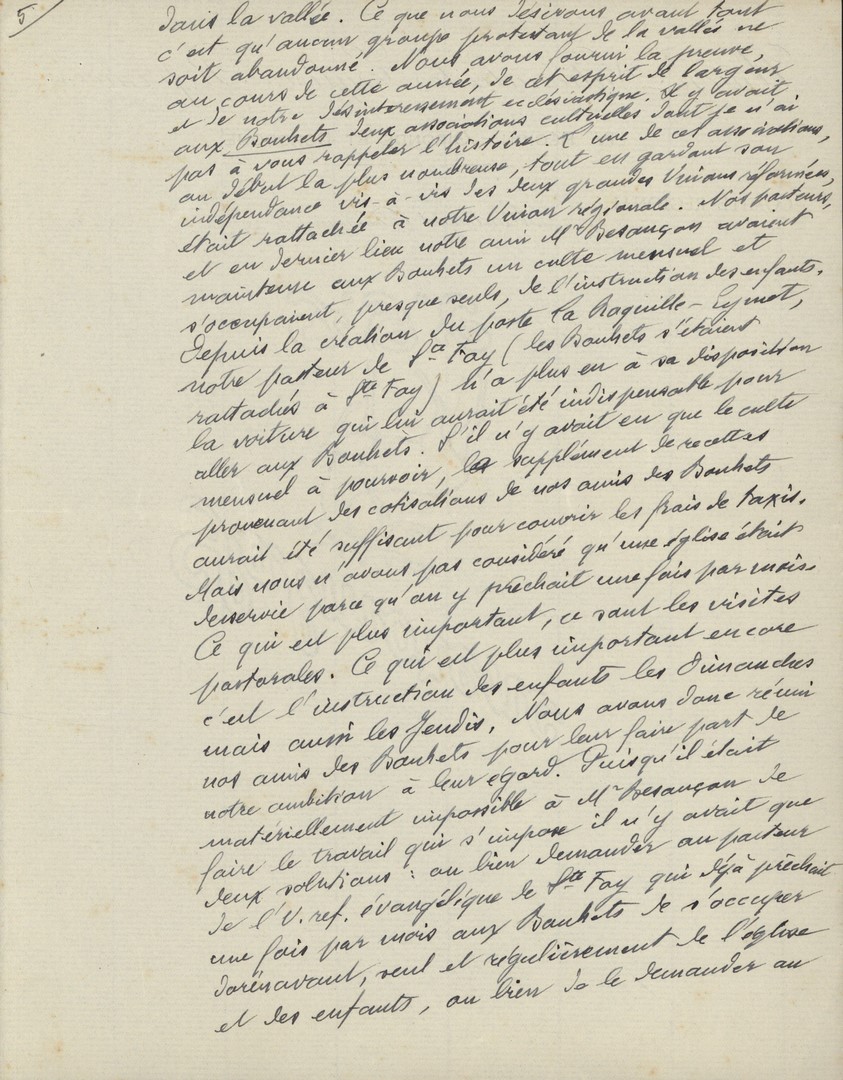 5
dans la vallée. Ce que nous désirons avant tout
c'est qu'aucun groupe protestant de la vallée ne
soit abandonné. Nous avons fourni la preuve,
au cours de cette année, de cet esprit de largeur
et de notre désintéressement ecclésiastique. Il y avait
aux Bouhets deux associations cultuelles dont je n'ai
pas à vous rappeler l'histoire. L'une de ces associations,
au début la plus nombreuse, tout en gardant son
indépendance vis-à-vis des deux grandes Unions réformées,
était rattachée à notre Union régionale. Nos pasteurs,
et en dernier lieu notre ami Mr Besançon avaient
maintenu aux Bouhets un culte mensuel et
s'occupaient, presque seuls, de l'instruction des enfants.
Depuis la création du poste la Baguille-Eymet,
notre pasteur de Ste Foy (les Bouhets s'étaient
rattachés à Ste Foy) n'a plus eu à sa disposition
la voiture qui lui aurait été indispensable pour
aller aux Bouhets. S'il n'y avait eu que le culte
mensuel à pourvoir, le supplément de recettes
provenant des cotisations de nos amis des Bouhets
aurait été suffisant pour couvrir les frais de taxis.
Mais nous n'avons pas considéré qu'une église était
desservie parce qu'on y prêchait une fois par mois.
Ce qui est plus important, ce sont les visites
pastorales. Ce qui est plus important encore
c'est l'instruction des enfants les Dimanches
mais aussi les Jeudis. Nous avons donc réuni
nos amis des Bouhets pour leur faire part de
notre ambition à leur égard. Puisqu'il était
matériellement impossible à Mr Besançon de
faire le travail qui s'impose il n'y avait que
deux solutions : ou bien demander au pasteur
de l'U. ref. évangélique de Ste Foy qui déjà prêchait
une fois par mois aux Bouhets de s'occuper
dorénavant, seul et régulièrement de l'église
et des enfants, ou bien de le demander au